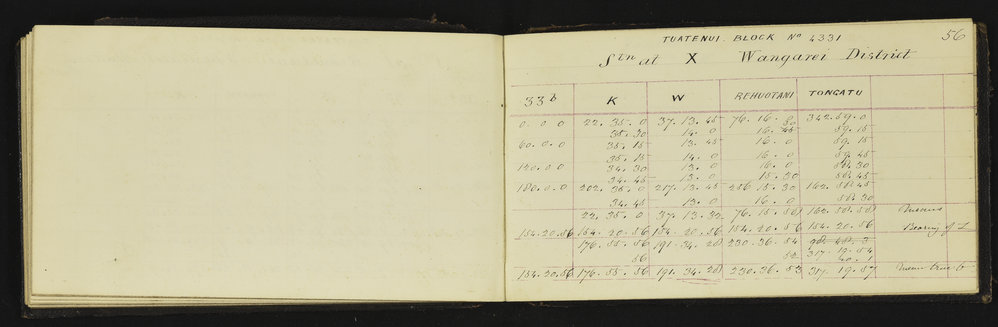 56
TUATENUI. BLOCK No 4331
Stn at X Wangarei District
33b K W REHUOTANI TONGATU
0. 0. 0 22. 35. 0 37. 13. 45 76. 16. 342. 59. 0
35. 30 14. 0 16. 45 59. 15
60. 0. 0 35. 15 13. 45 16. 0 59. 15
35. 15 14. 0 16. 0 59. 45
120. 0. 0 34. 30 13. 0 16. 0 30
34. 45 13. 0 15. 30 45
180. 0. 0 202. 35. 0 217. 13. 45 256 15. 30 162. 45
34. 45 13. 0 16. 0 30
22. 35. 0 37. 13. 32 76. 15. 58 162. 58. 58 Means
154. 20. 56 154. 20. 56 154. 20. 56 154. 20. 56 154. 20. 56 Bearing of L
176. 55. 56 191. 34. 28 230. 36. 54
56 52 317. 19. 54
154. 20. 56 176. 55. 56 191. 34. 28 230. 36. 53 317. 19. 57 Mean true b